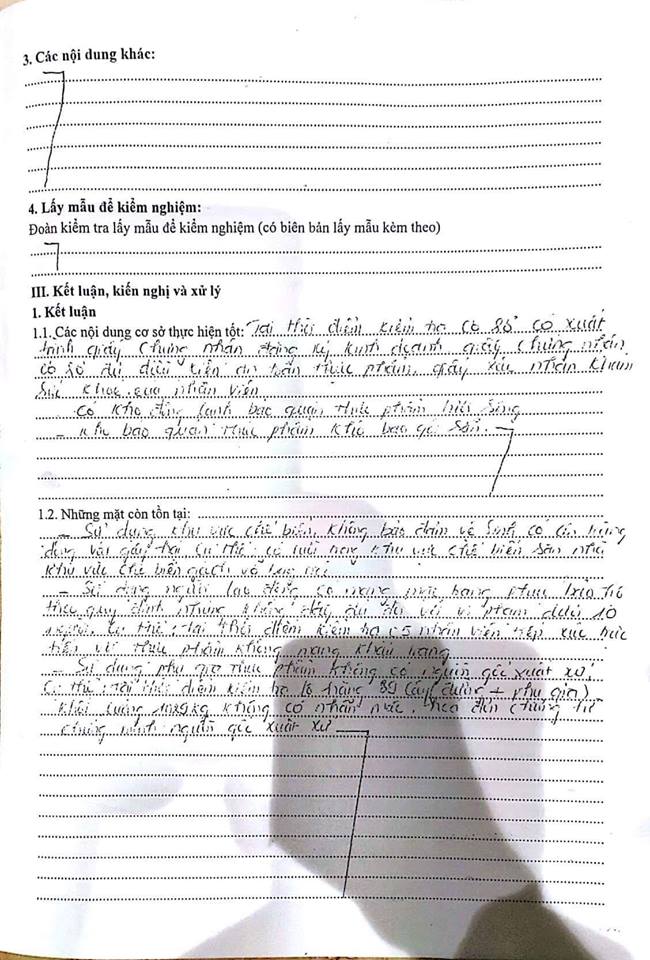 3. Các nội dung khác:
4. Lấy mẫu để kiểm nghiệm:
Đoàn kiểm tra lấy mẫu để kiểm nghiệm (có biên bản lấy mẫu kèm theo)
III. Kết luận, kiến nghị và xử lý
1. Kết luận
1.1. Các nội dung cơ sở thực hiện tốt: Tại thời điểm kiểm tra cơ sở có xuất
trình giấy chứng nhận đăng ký kinh doanh giấy chứng nhận
cơ sở đủ điều kiện an toàn thực phẩm, giấy xác nhận khám
sức khoẻ của nhân viên
- có kho đông lạnh bảo quản thực phẩm tươi sống
- Khu bảo quản thực phẩm khô bao gói sẵn.
1.2. Những mặt còn tồn tại:
- Sử dụng khu vực chế biến, không bảo đảm vệ sinh có côn trùng
động vật gây hại cụ thể: có ruồi trong khu vực chế biến sàn nhà
khu vực chế biến gạch vỡ
- Sử dụng người lao động có mang mặc trang phục bảo hộ
theo quy định nhưng không đầy đủ đối với vi phạm dưới 10
người. Cụ thể: Tại thời điểm kiểm tra 05 nhân viên tiếp xúc trực
tiếp với thực phẩm không mang khẩu trang
- Sử dụng phụ gia thực phẩm không có nguồn gốc xuất xứ.
Cụ thể: Tại thời điểm kiểm tra lô hàng
khối lượng kg không có nhãn mác, hóa đơn chứng từ
chứng minh nguồn gốc xuất xứ